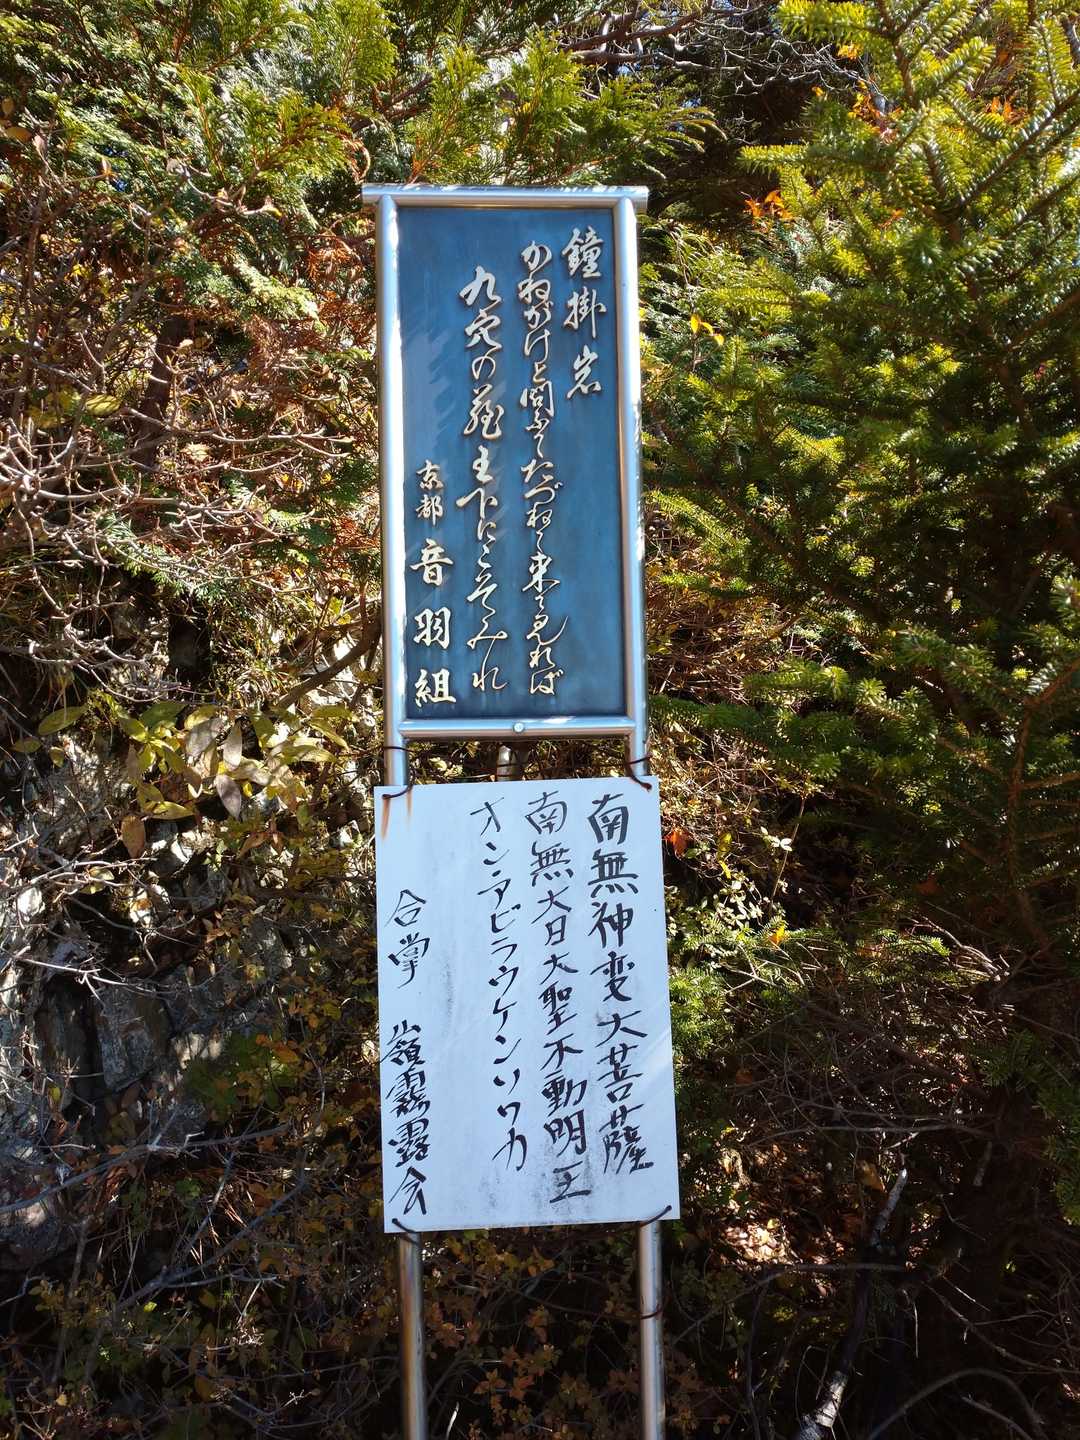 鐘掛岩
かねがけと問ふてたづねて来て見れば
九穴の蔵王下にこそみれ
京都 音羽組
南無神変大菩薩
南無大日大聖不動明王
オンアビラウケンソワカ
合掌 山嶺霧露会